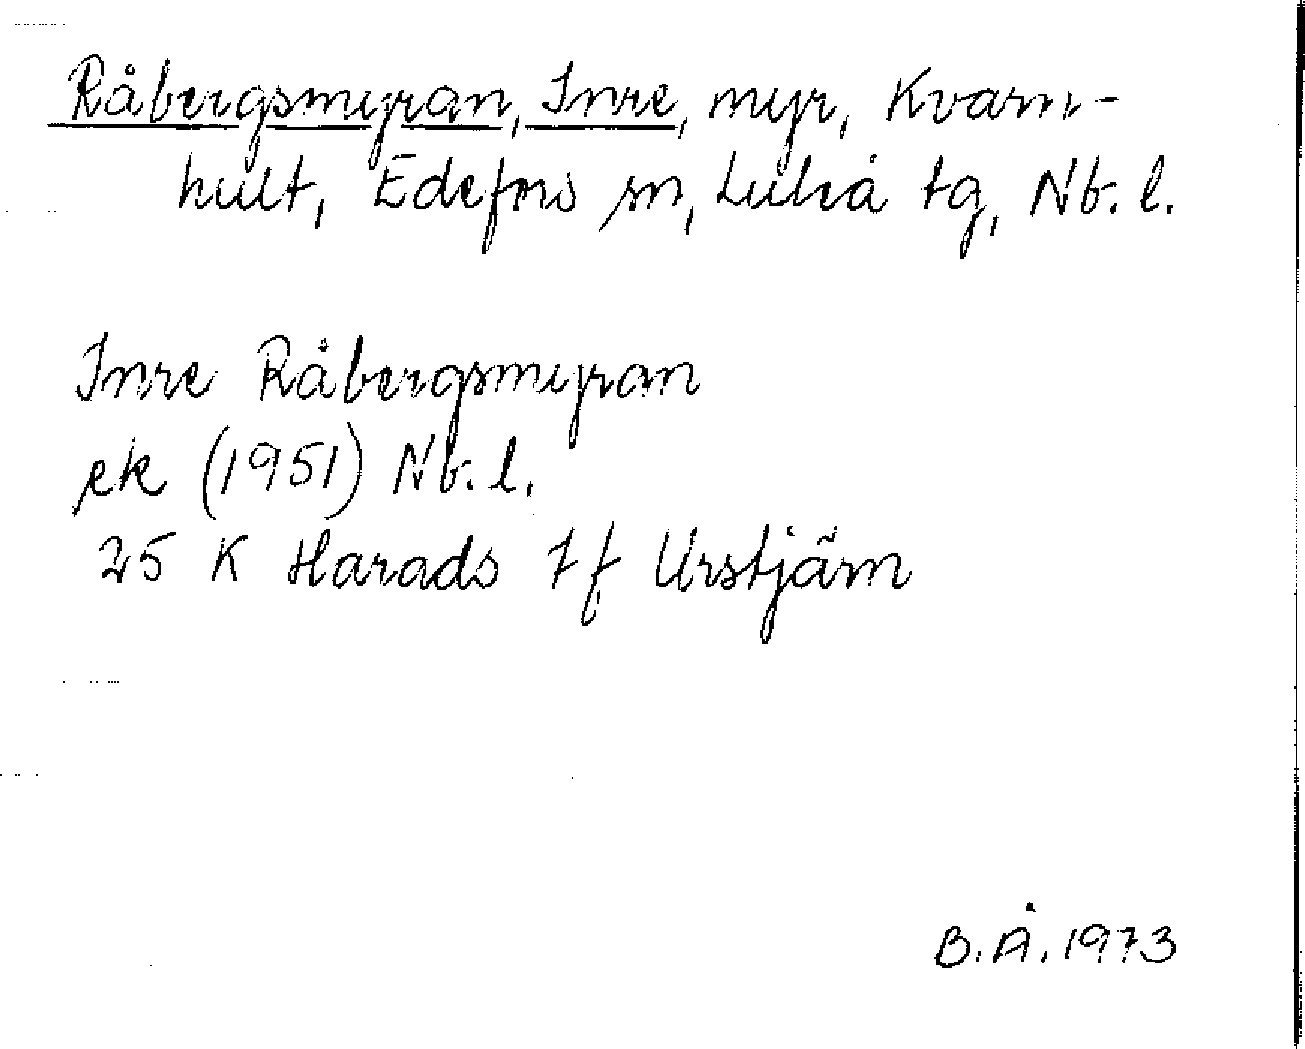 Råbergsmyran, Inre, myr, Kvarn-
hult, Edefors sn, Luleå tg, Nb. l.
Inre Råbergsmyran
ek (1951) Nb. l.
25 K Harads 7 f Urstjärn
B.Å. 1973